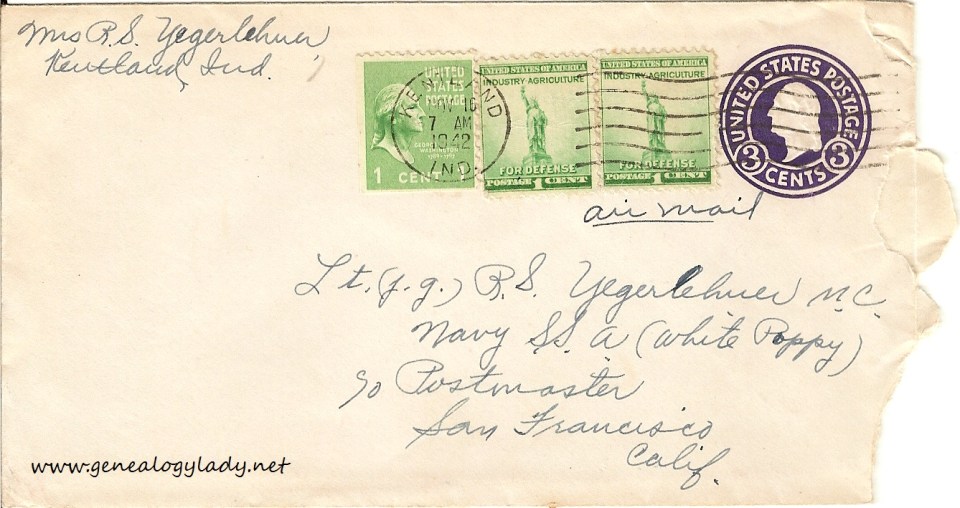 Mrs R.S. Yegerlehner
Kentland, Ind.
UNITED STATES POSTAGE
GEORGE WASHINGTON
1 CENT
KENTLAND
16
7 AM
1942
IND.
UNITED STATES OF AMERICA
INDUSTRY-AGRICULTURE
FOR DEFENSE
POSTAGE 1 CENT
UNITED STATES OF AMERICA
INDUSTRY-AGRICULTURE
FOR DEFENSE
POSTAGE 1 CENT
UNITED STATES POSTAGE
3 CENTS 3
air mail
Lt. (j.g.) R.S. Yegerlehner M.C.
Navy S.S. A (White Poppy)
c/o Postmaster
San Francisco
Calif.
www.genealogylady.net